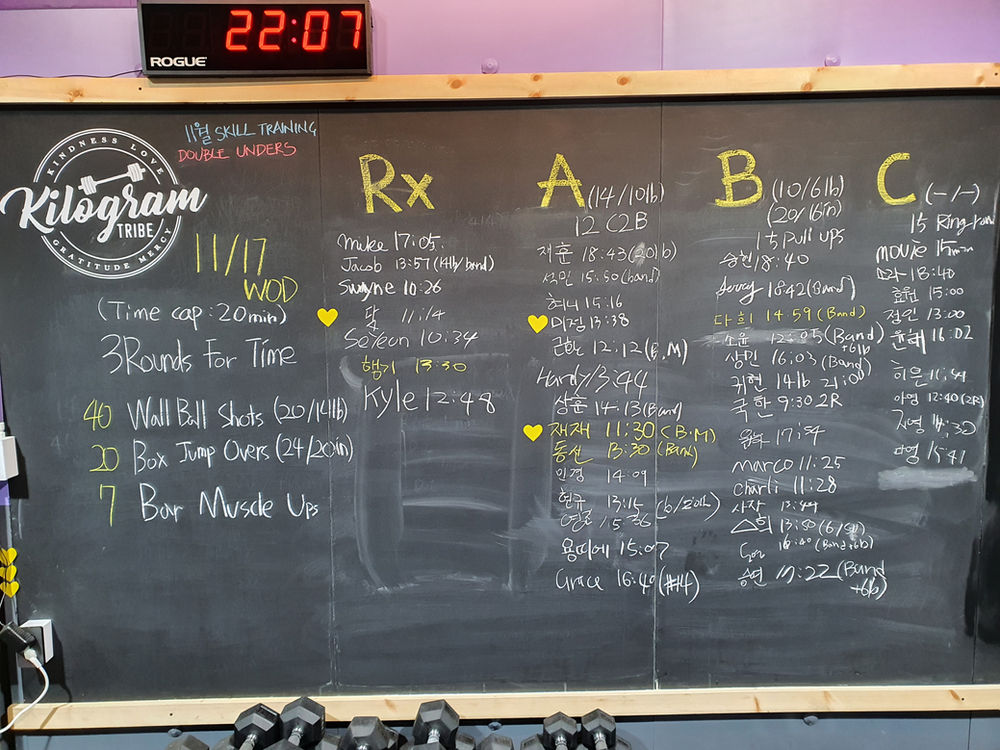 22:07
ROGUE
KINDNESS LOVE
Kilogram
TRIBE
GRATITUDE MERCY
11월 SKILL TRAINING
DOUBLE UNDERS
11/17
WOD
(Time cap: 20min)
3Rounds For Time
40 Wall Ball Shots (20/14lb)
20 Box Jump Overs (24/20in)
7 Bar Muscle Ups
Rx
mike 17:05
Jacob 13:57 (14lb/band)
Swyne 10:26
11:14
SeYeon 10:34
행기 13:30
Kyle 12:48
A (14/10lb)
12 C2B
재훈 18:43 (20lb)
석민 15:50 (band)
혀니 15:16
미정 13:38
근항 12:12 (B,M)
Hardy 13:44
상훈 14:13 (Band)
재재 11:30 (B.M)
동산 13:30 (Band)
인경 14:09
현규 13:15
15:36
용띠에 15:07
Grace 16:40 (#14)
B (10/6lb)
(20/16in)
15 Pull ups
승현 18:40
Jerry 18:42 (Band)
다희 14:59 (Band)
소윤 12:05 (Band
+6lb
상민 16:03 (Band)
귀현 14lb 21:00
국한 9:30 2R
17:54
marco 11:25
charli 11:28
사장 13:44
소희 13:50
(Band+6lb)
승연 17:22 (Band
+6lb)
C (-/-)
15 Ring row
movie 15min
13:40
효원 15:00
정인 13:00
윤혜 16:02
희은 11:44
아영 12:40 (2R)
지영 14:30
다영 15:41